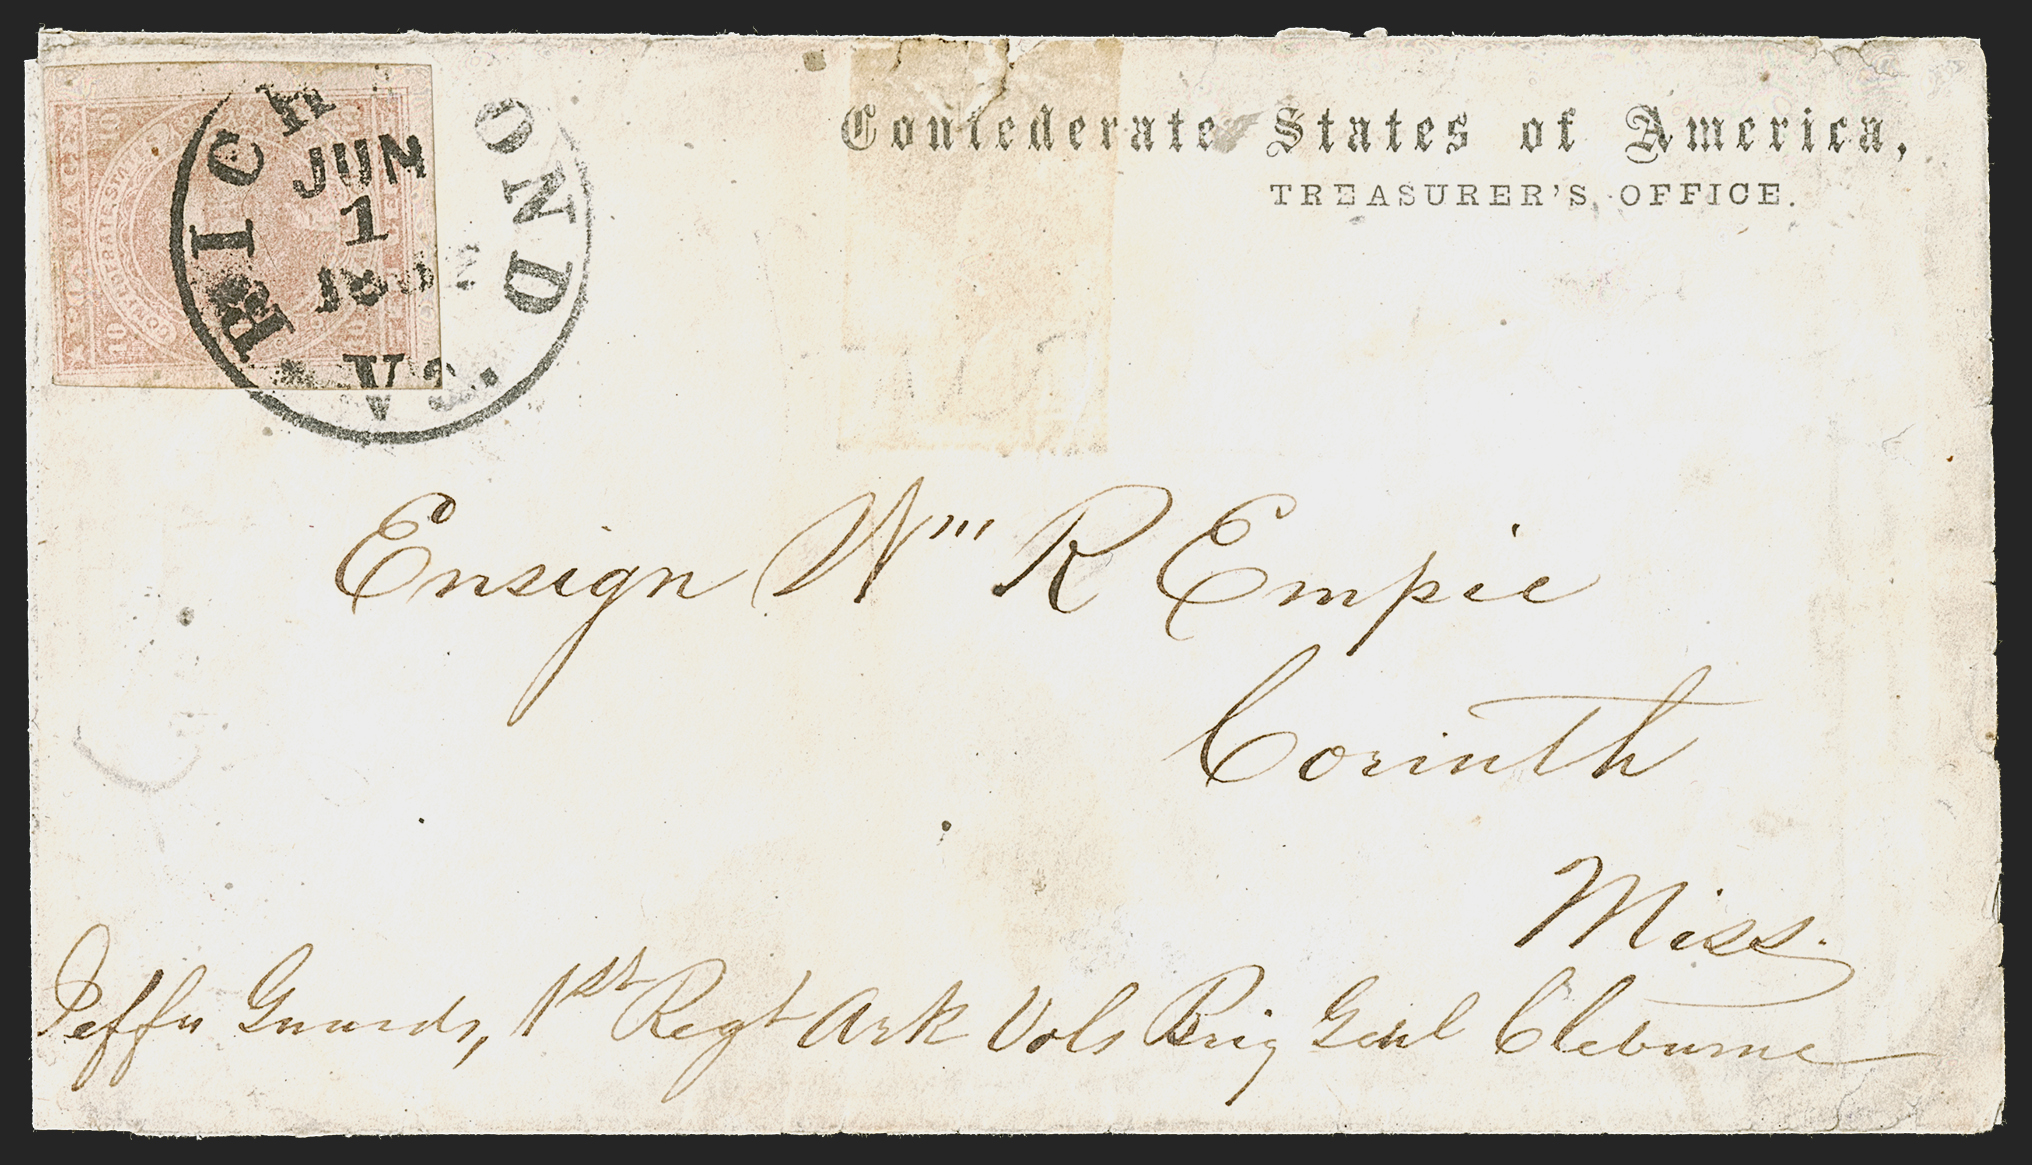 Confederate States of America,
TREASURER'S OFFICE.
RICHMOND
JUN
1
Va.
POSTAGE
10
10
Ensign Wm R Empie
Corinth
Miss.
Jeffn Guards, 1st Regt Ark Vols Brig Genl Cleburne